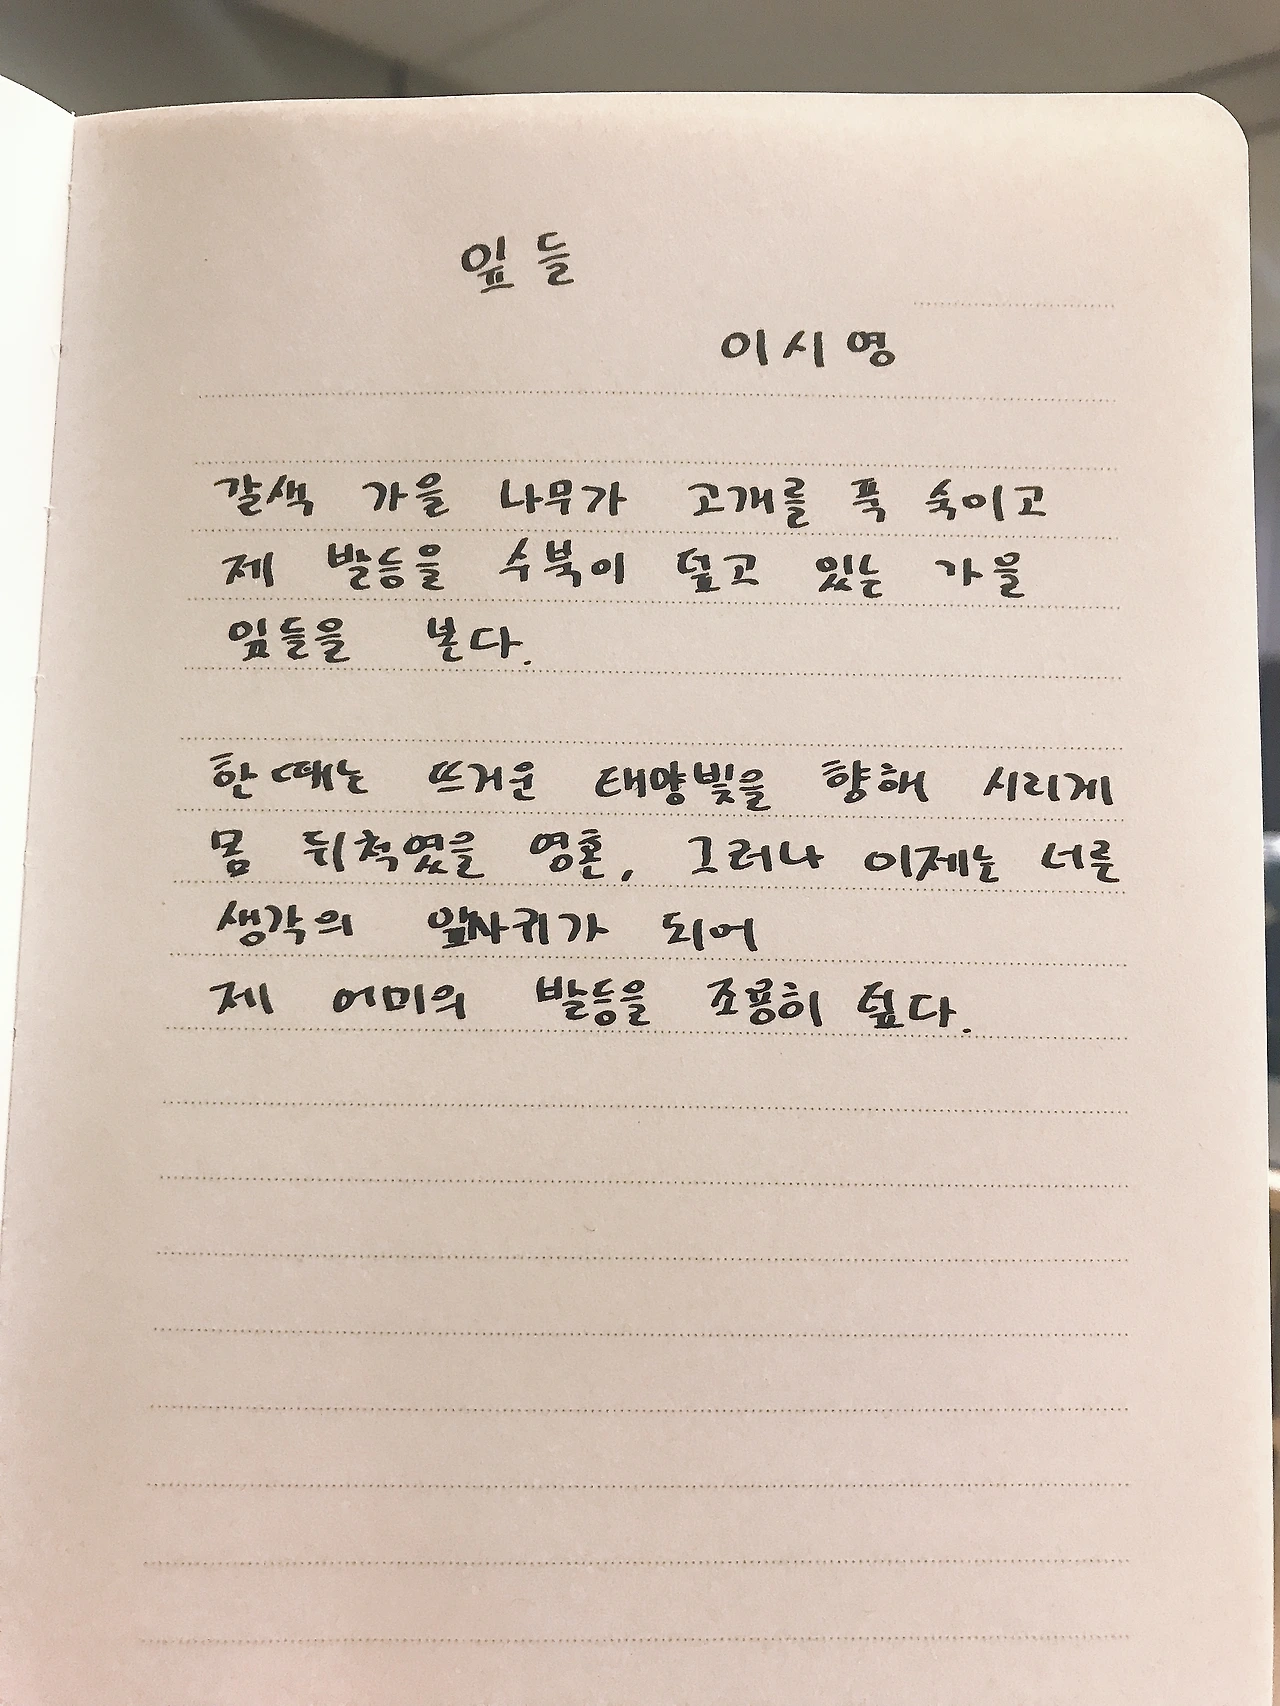 잎들
이시영
갈색 가을 나무가 고개를 푹 숙이고
제 발등을 수북이 덮고 있는 가을
잎들을 본다.
한때는 뜨거운 태양빛을 향해 시리게
몸 뒤척였을 영혼, 그러나 이제는 너른
생각의 잎사귀가 되어
제 어미의 발등을 조용히 덮다.